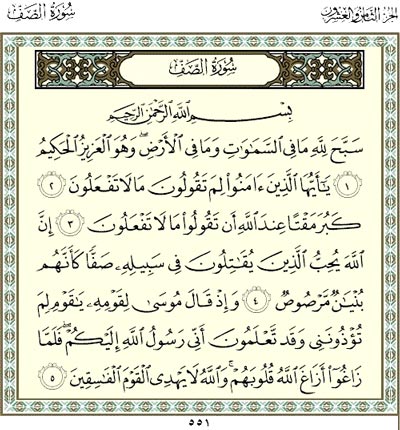 سُورَةُ الصَّفِّ
الجزء الثامن والعشرون
سُورَةُ الصَّفِّ
بِسْمِ اللَّهِ الرَّحْمَٰنِ الرَّحِيمِ
سَبَّحَ لِلَّهِ مَا فِي السَّمَٰوَٰتِ وَمَا فِي الْأَرْضِ ۖ وَهُوَ الْعَزِيزُ الْحَكِيمُ
١ يَٰٓأَيُّهَا الَّذِينَ ءَامَنُوا لِمَ تَقُولُونَ مَا لَا تَفْعَلُونَ ٢
كَبُرَ مَقْتًا عِندَ اللَّهِ أَن تَقُولُوا مَا لَا تَفْعَلُونَ ٣ إِنَّ
اللَّهَ يُحِبُّ الَّذِينَ يُقَٰتِلُونَ فِي سَبِيلِهِ صَفًّا كَأَنَّهُم
بُنْيَٰنٌ مَّرْصُوصٌ ٤ وَإِذْ قَالَ مُوسَىٰ لِقَوْمِهِ يَٰقَوْمِ لِمَ
تُؤْذُونَنِي وَقَد تَّعْلَمُونَ أَنِّي رَسُولُ اللَّهِ إِلَيْكُمْ ۖ فَلَمَّا
زَاغُوٓا أَزَاغَ اللَّهُ قُلُوبَهُمْ ۚ وَاللَّهُ لَا يَهْدِي الْقَوْمَ الْفَٰسِقِينَ ٥
٥٥١